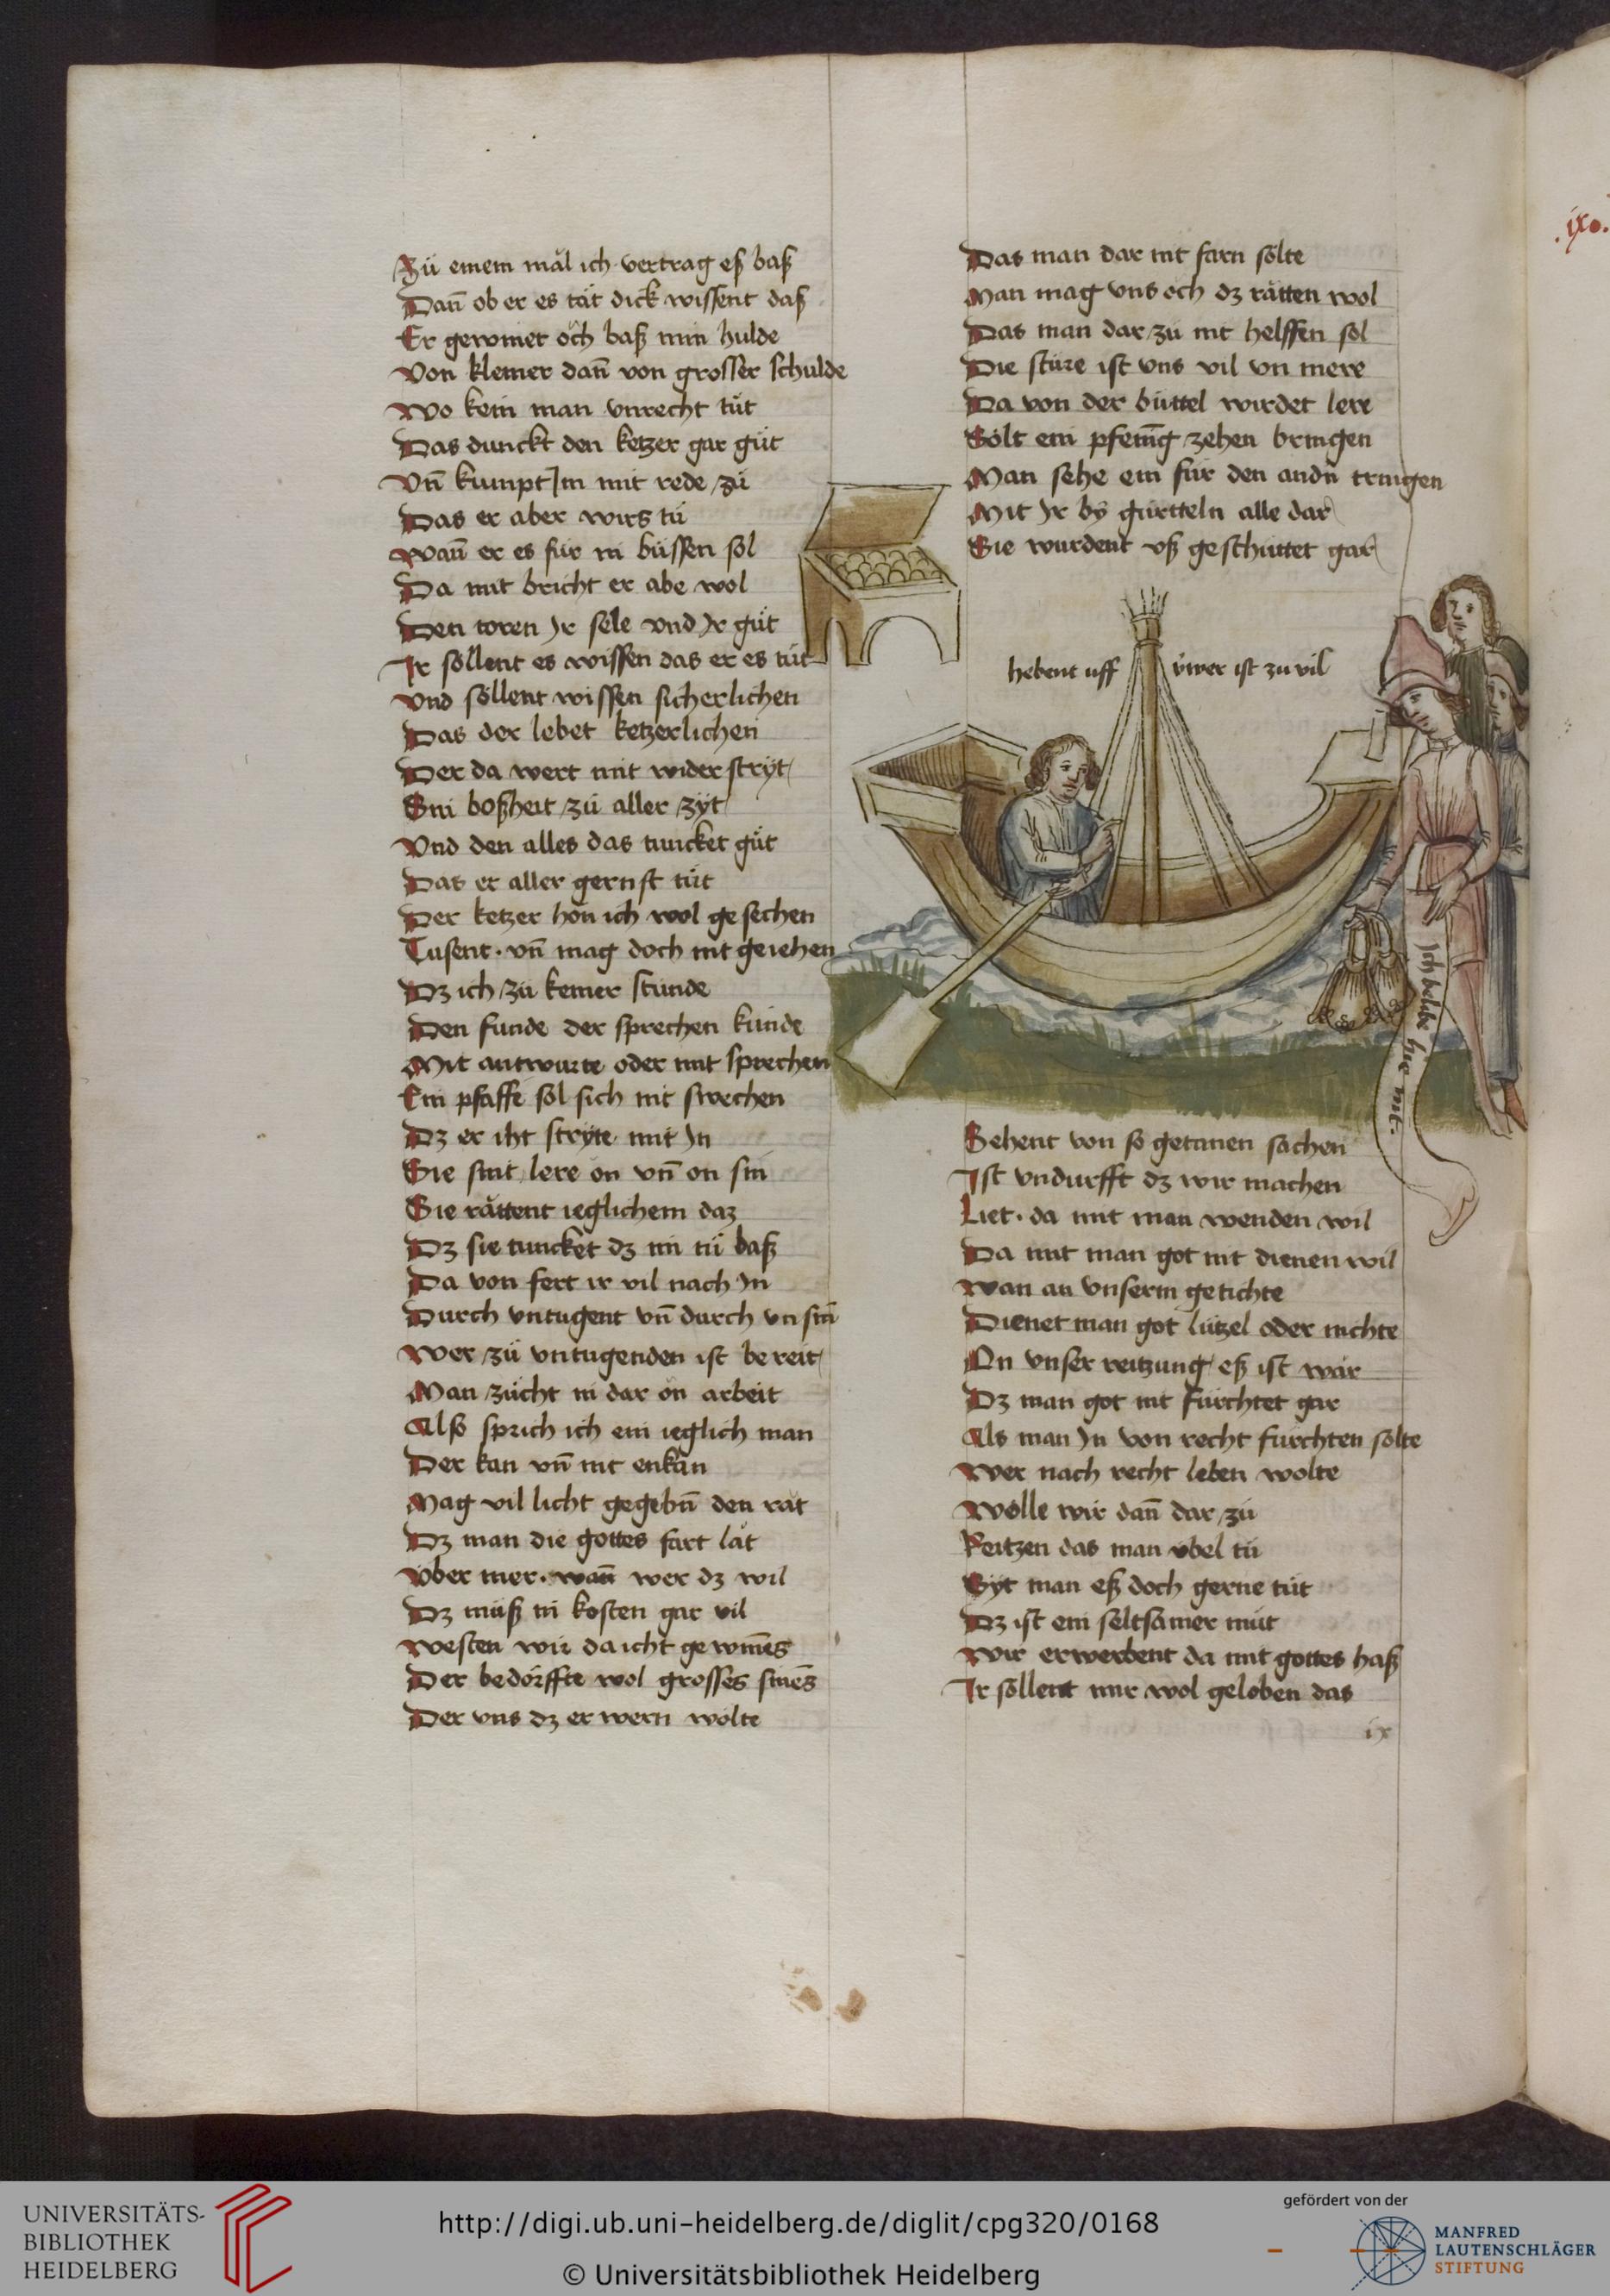 Zü einem mǎl ich vertrag eß baß
Dañ ob er es tät dick wissent daß
Er gewinet öch baß min hulde
Von kleiner dañ von grosser schulde
Wo kein man vnrecht tüt
Das dunckt den ketzer gar güt
Vn̄ kumpt Im mit rede zü
Das er aber wirs tü
Wan̄ er es für in büssen sol
Da mit bricht er abe wol
Den toren Ir sele vnd Ir güt
Ir söllent es wissen das er es tüt
Vnd söllent wissen sicherlichen
Das der lebet ketzerlichen
Der da wert mit widerstryt
Sin boßheit zü aller zyt
Vnd den alles das tuncket güt
Das er aller gernst tüt
Der ketzer hön ich wol gesechen
Tusent. vn̄ mag doch nit geiehen
Dz ich zü keiner stunde
Den funde der sprechen kunde
Mit antwurte oder mit sprechen
Ein pfaffe sol sich nit swechen
Dz er iht stryte mit In
Sie sint lere on vn̄ on sin
Sie rättent ieglichem daz
Dz sie tuncket dz im tü baß
Da von fert ir vil nach In
Durch vntugent vn̄ durch vn sin̄
Wer zü vntugenden ist bereit
Man zücht in dar ön arbeit
Alß sprich ich ein ieglich man
Der kan vn̄ nit enkan
Mag vil licht gegebn̄ den rǎt
Dz man die gottes fart lǎt
Vber mer. wan̄ wer dz wil
Dz müß in kosten gar vil
Westen wir da icht gewin̄es
Der bedörffte wol grosses sin̄es
Der vns dz erwern wölte
Das man dar nit farn sölte
Man mag vns och dz rätten wol
Das man dar zü nit helffen sol
Die stüre ist vns vil vn mere
Da von der büttel wirdet lere
Sölt ein pfennig zehen bringen
Man sehe ein für den andn̄ tringen
Mit Ir by gürtteln alle dar
Sie wurdent vß geschüttet gar
hebent uff üwer ist zu vil
Ich belibe hie mit.
Sehent von so getanen sachen
Ist vndurfft dz wir machen
Liet. da mit man wenden wil
Da mit man got nit dienen wil
Wan an vnserm getichte
Dienet man got lützel oder nichte
On vnser reitzung eß ist wär
Dz man got nit fürchtet gar
Als man In von recht fürchten sölte
Wer nach recht leben wolte
Wölle wir dan̄ dar zü
Reitzen das man vbel tü
Syt man eß doch gerne tüt
Dz ist ein seltsamer müt
Wir erwerbent da mit gottes haß
Ir söllent mir wol geloben das
ix
UNIVERSITÄTS-
BIBLIOTHEK
HEIDELBERG
http://digi.ub.uni-heidelberg.de/diglit/cpg320/0168
© Universitätsbibliothek Heidelberg
gefördert von der
MANFRED
LAUTENSCHLÄGER
STIFTUNG